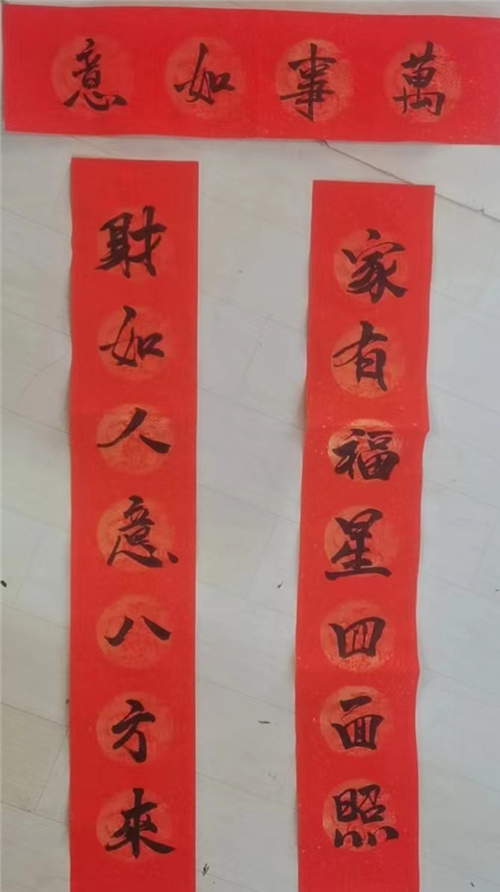 萬事如意
家有福星四面照
財如人意八方來